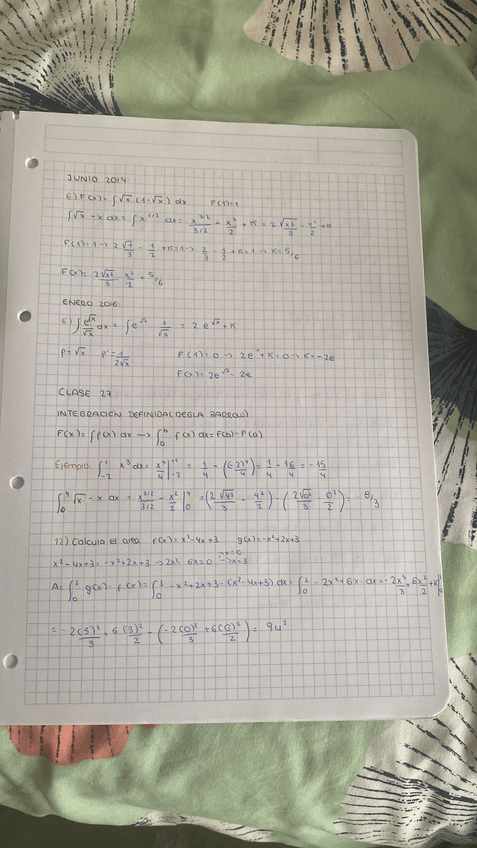 JUNIO 2014
6) F(x)= ∫√x (1-√x) dx F(1)=1
∫√x - x dx = ∫ x^1/2 dx = x^3/2 / 3/2 - x²/2 + K = 2√x³/3 - x²/2 + K
F(1)=1 → 2√1/3 - 1/2 + K = 1 → 2/3 - 1/2 + K = 1 → K = 5/6
F(x)= 2√x³/3 - x²/2 + 5/6
ENERO 2016
6) ∫ e^√x/√x dx = ∫ e^√x 1/√x = 2e^√x + K
f=√x f'= 1/2√x F(1)=0 → 2e^1 + K = 0 → K = -2e
F(x)= 2e^√x - 2e
CLASE 27
INTEGRACIÓN DEFINIDA (REGLA BARROW)
F(x)= ∫f(x) dx → ∫_a^b f(x) dx = F(b) - F(a)
Ejemplo: ∫_-2^1 x³ dx = x⁴/4 |_-2^1 = 1/4 - ((-2)⁴/4) = 1/4 - 16/4 = -15/4
∫_0^4 √x - x dx = x^3/2 / 3/2 - x²/2 |_0^4 = (2√4³/3 - 4²/2) - (2√0³/3 - 0²/2) = -8/3
12) Calcula el area f(x)= x²-4x+3 g(x)=-x²+2x+3
x²-4x+3 = -x²+2x+3 → 2x²-6x=0 →x=0 →x=3
A= ∫_0^3 g(x) - f(x) = ∫_0^3 -x²+2x+3 - (x²-4x+3) dx = ∫_0^3 -2x²+6x dx = -2x³/3 + 6x²/2 + K]_0^3
= -2(3)³/3 + 6(3)²/2 - (-2(0)³/3 + 6(0)²/2) = 9u²